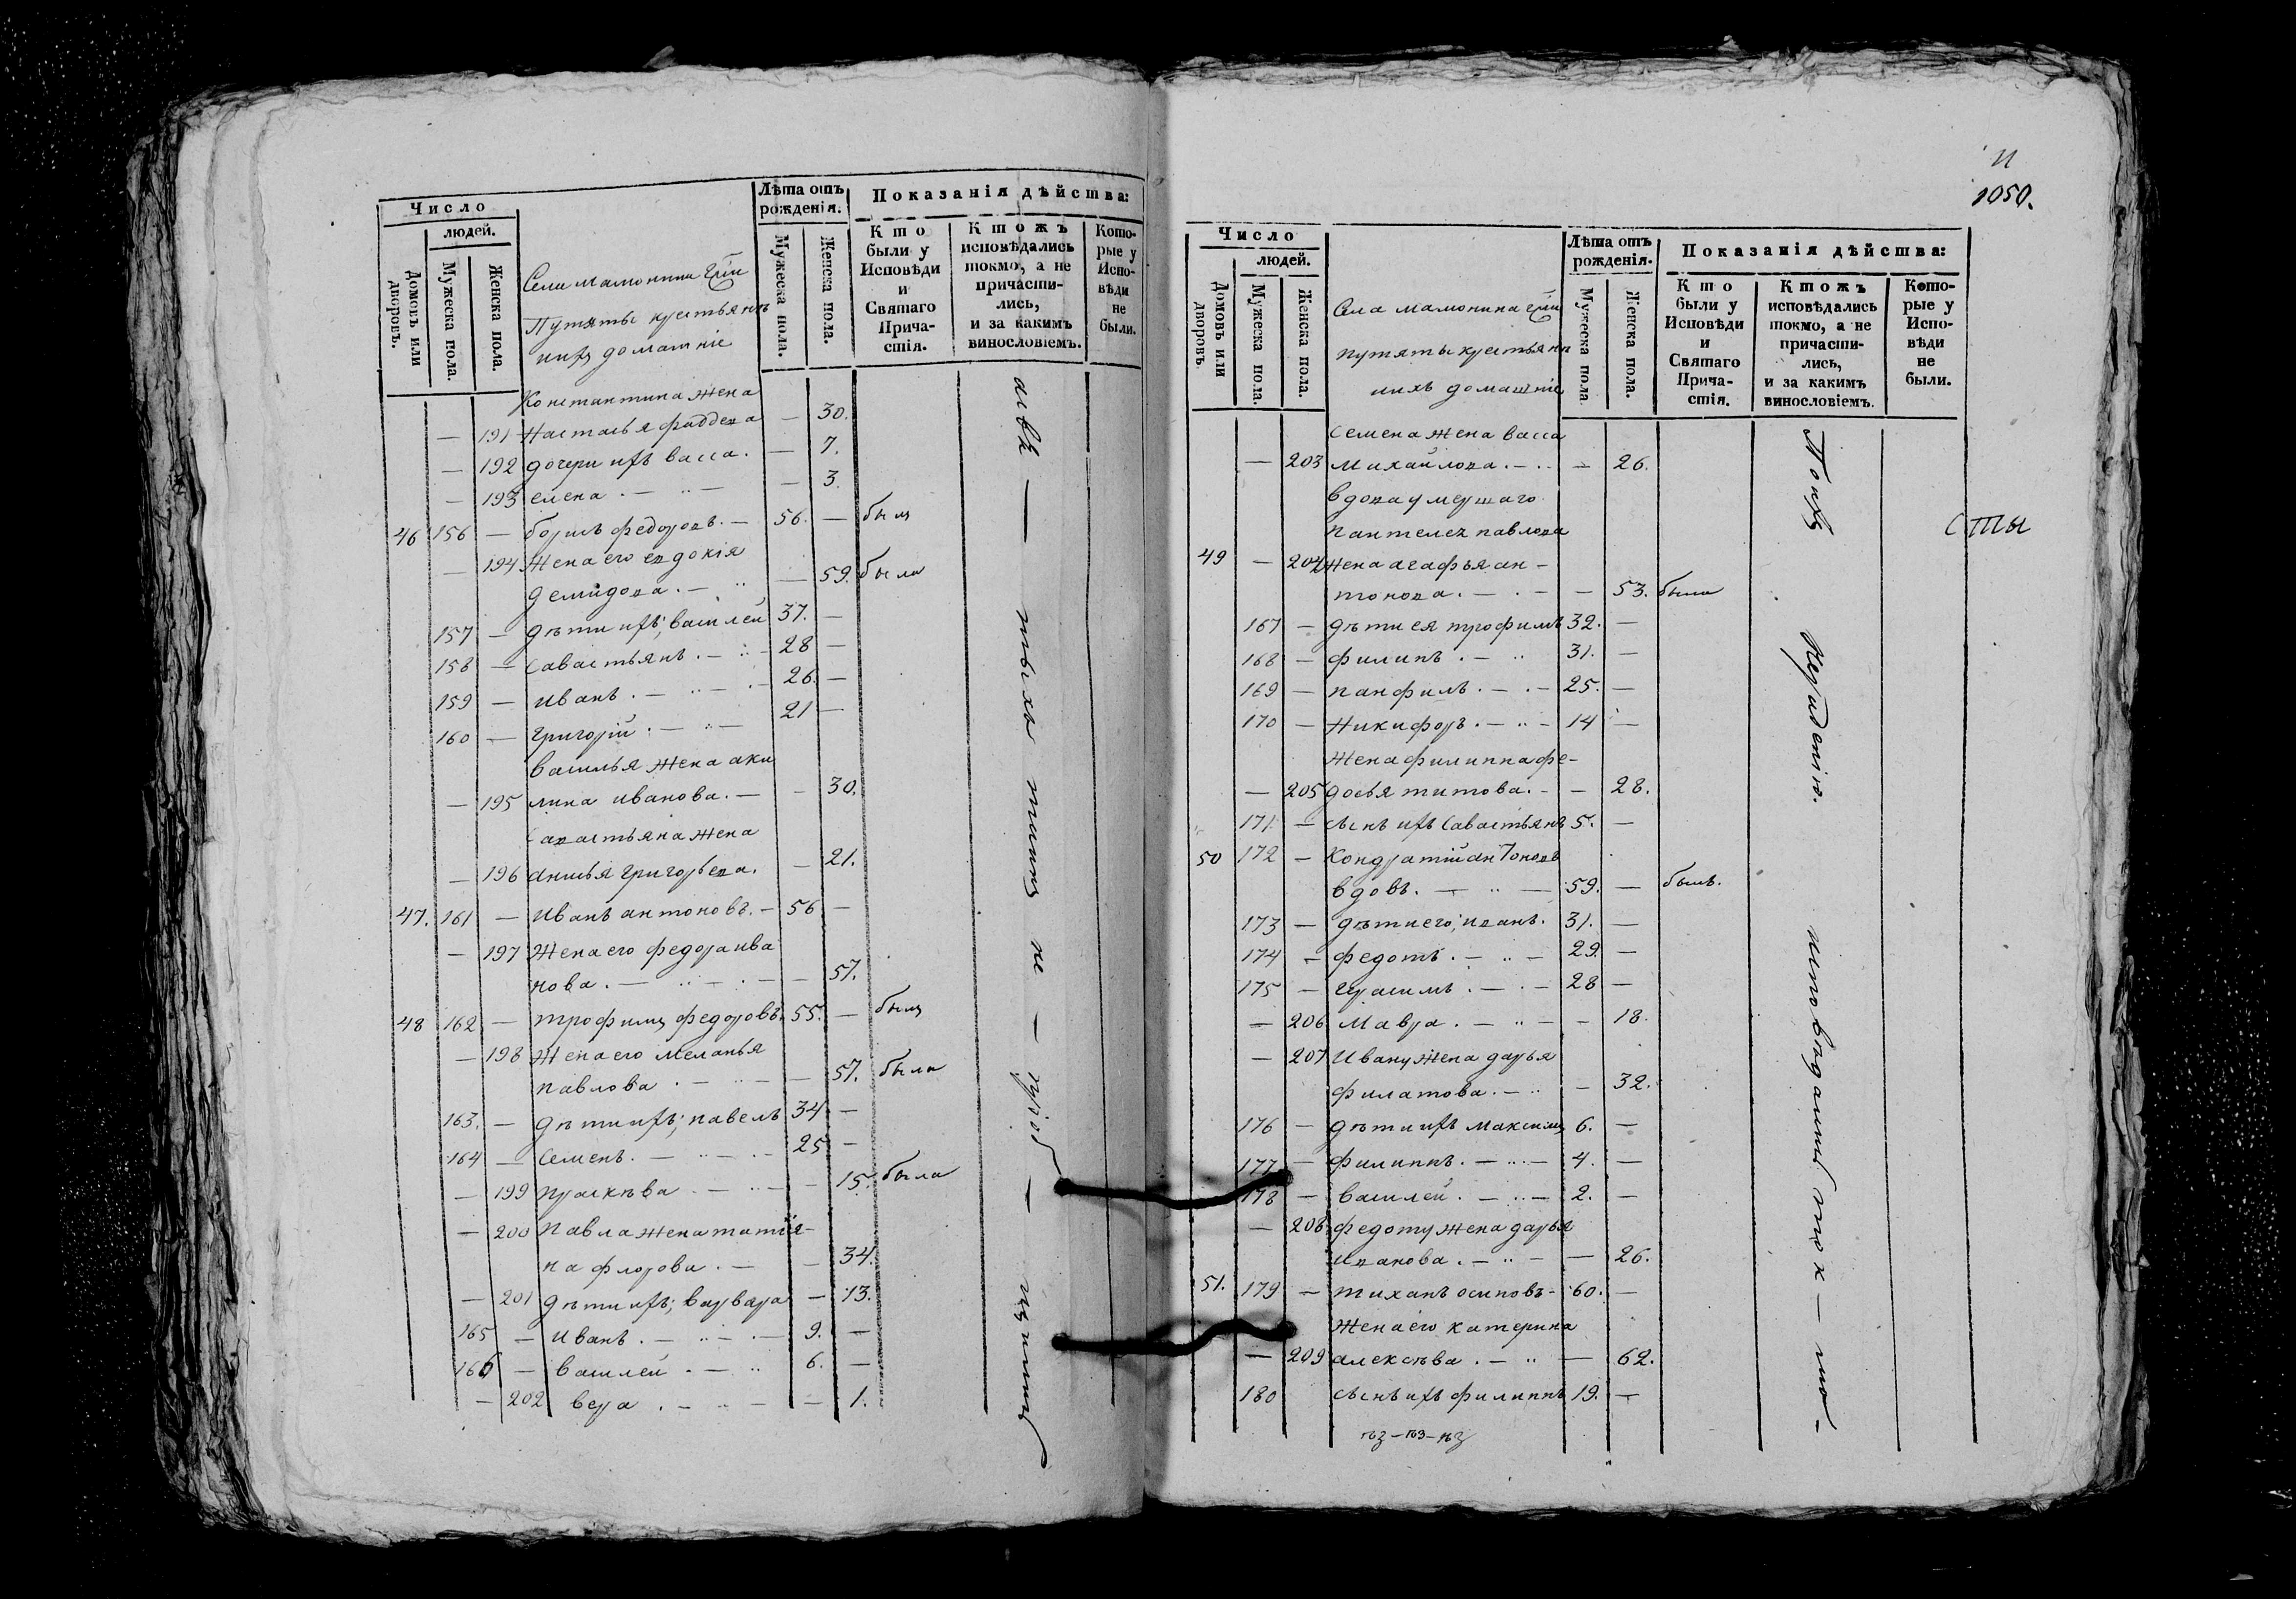 Число
людей.
Домовъ или дворовъ.
Мужеска пола.
Женска пола.
Села мамонина Гдѣи
Путяты крестьяня
ихъ домашніе
Лѣта отъ рожденія.
Мужеска пола.
Женска пола.
Показанія дѣйства:
Кто были у Исповѣди и Святаго Причастія.
Ктожъ исповѣдались токмо, а не причастились, и за какимъ винословіемъ.
Которые у Исповѣди не были.
Константина жена
— 191 Настасья фаддева — 30.
— 192 дочери ихъ васса. — 7.
— 193 елена . — .. — — 3.
46 156 — борисъ федоровъ. — 56. — былъ
— 194 Жена его евдокія
демидова . — .. — 59. была
157 — дѣти ихъ; василей 37. —
158 — Савастьянъ . — .. — 28 —
159 — иванъ . — .. — . — 26. —
160 — григорій . — .. — 21 —
василья жена аки
— 195 лина иванова. — — 30.
Савастьяна жена
— 196 анисья григорьева. — 21.
47. 161 — иванъ антоновъ. — 56 —
— 197 Жена его федора ива
нова . — .. — . — — 57.
48 162 — трофимъ федоровъ. 55. — былъ
— 198 Жена его меланья
павлова . — .. — — 57. была
163. — дѣти ихъ; павелъ 34 —
164 — Семенъ. — .. — .— 25 —
— 199 праскѣва . — .. — — 15. была
— 200 Павла жена татія-
на флорова . — — 34.
— 201 дѣти ихъ; варвара — 13.
165 — иванъ . — .. — . — 9. —
166 — василей . — .. 6. —
— 202 вера . — .. — — 1.
и
1050.
Число
людей.
Домовъ или дворовъ
Мужеска пола.
Женска пола.
Села мамонина Гдѣи
путяты крестьяня
ихъ домашніе
Лѣта отъ рожденія.
Мужеска пола
Женска пола.
Показанія дѣйства:
Кто были у Исповѣди и Святаго Причастія.
Ктожъ исповѣдались токмо, а не причастились, и за какимъ винословіемъ.
Которые у Исповѣди не были.
Семена жена васса
— 203 михайлова . — .. — 26.
вдова умершаго
пантелея павлова
49 — 204 жена агафья ан —
тонова . — . — — 53. была
167 — дѣти ея трофимъ 32. —
168 — филипъ . — .. 31. —
169 — панфилъ . — . — 25. —
170 — Никифоръ . — .. — 14 —
Жена филиппа фе-
— 205 досья титова. - — 28.
171 — сынъ ихъ Савастьянъ 5. —
50 172 — Кондратій антоновъ
вдовъ. — .. — 59. — былъ.
173 — дѣти его; иванъ. 31. —
174 — федотъ . — .. — 29. —
175 — герасимъ . — . — 28 —
— 206 Мавра . — .. — — 18.
— 207 Ивану жена дарья
филатова . — .. — 32.
176 — дѣти ихъ максимъ 6. —
177 — филиппъ. — .. — 4. —
178 — василей . — .. — 2. —
— 208 федоту жена дарья
иванова . — .. — — 26.
51. 179 — тиханъ осиповъ - 60. —
Жена его катерина
— 209 алексѣва . — .. — 62.
180 сынъ ихъ филиппъ 19. —
сты